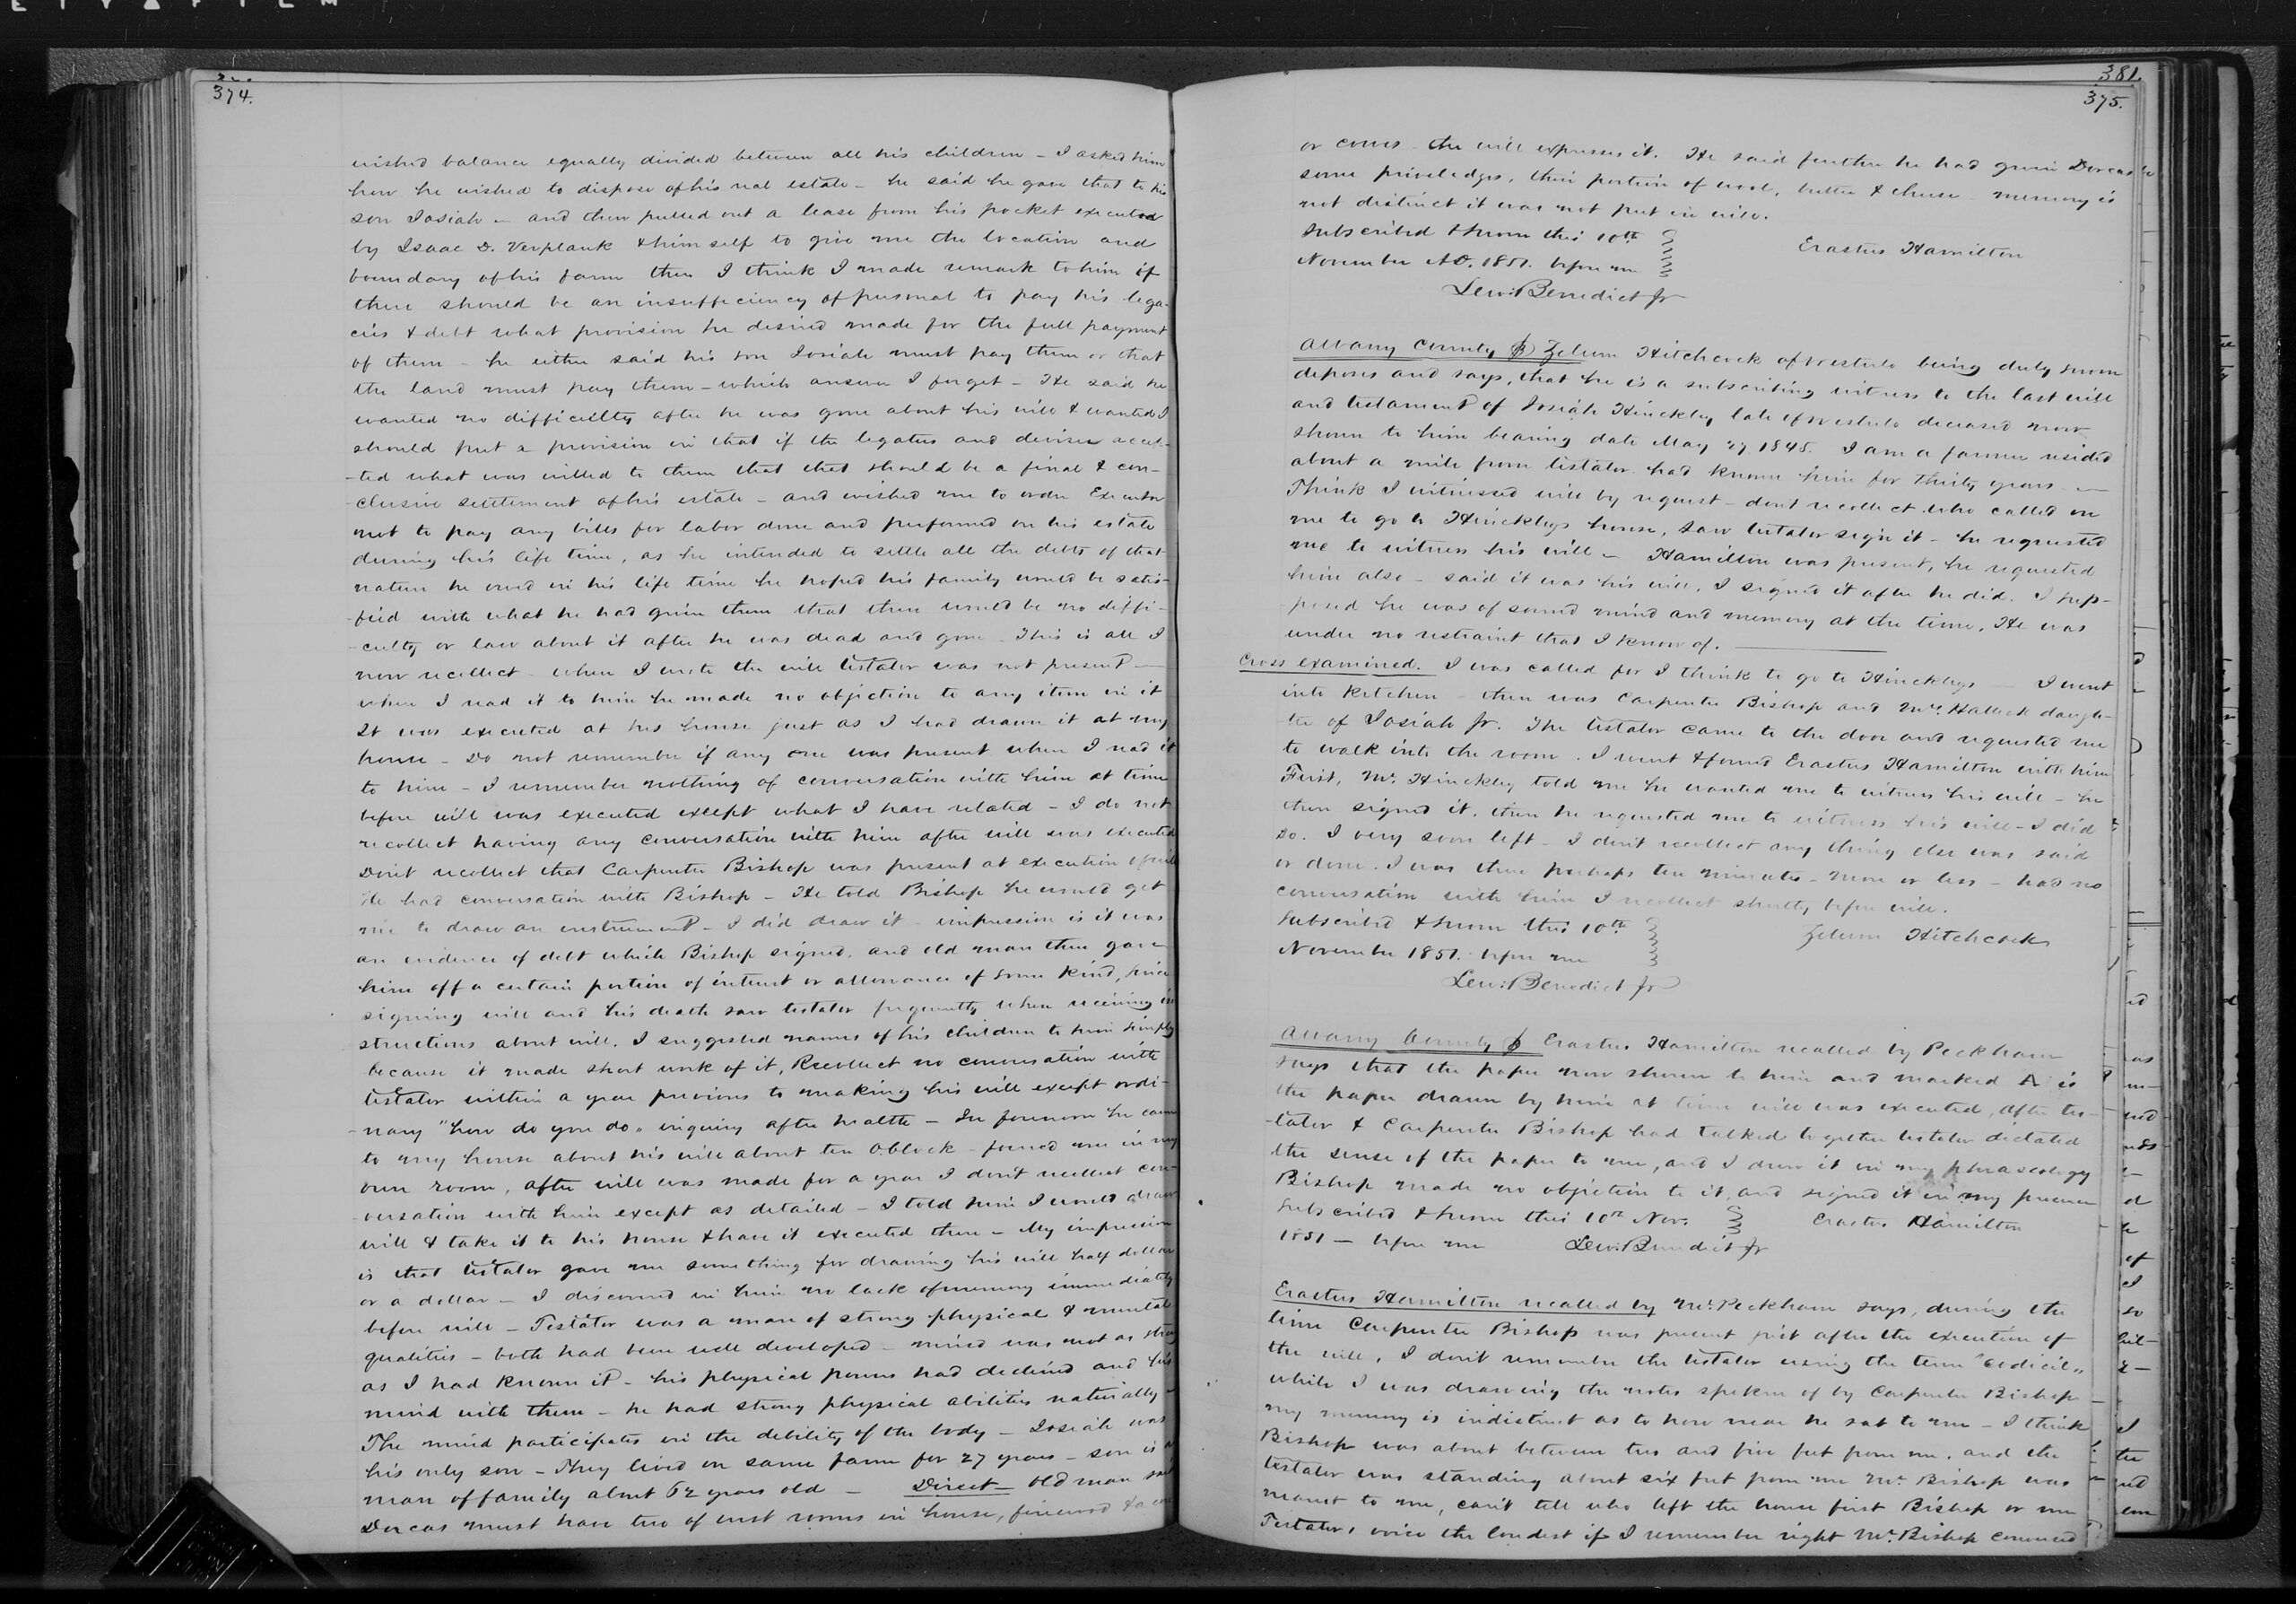 374.
wished balance equally divided between all his children - I asked him
how he wished to dispose of his real estate - he said he gave that to his
son Josiah - and then pulled out a lease from his pocket executed
by Isaac D. Verplank & himself to give me the location and
boundary of his farm then I think I made remark to him if
there should be an insufficiency of personal to pay his lega-
cies & debt what provision he desired made for the full payment
of them - he either said his son Josiah must pay them or that
the land must pay them - which answer I forget - He said he
wanted no difficulty after he was gone about his will & wanted I
should put a provision in that if the legatees and devisees accep-
-ted what was willed to them that that should be a final & con-
-clusive settlement of his estate - and wished me to order Executor
not to pay any bills for labor done and performed on his estate
during his life time, as he intended to settle all the debts of that
nature he owed in his life time he hoped his family would be satis-
-fied with what he had given them that there would be no diffi-
-culty or law about it after he was dead and gone. This is all I
now recollect - when I wrote the will testator was not present -
when I read it to him he made no objection to any item in it
It was executed at his house just as I had drawn it at my
house - Do not remember if any one was present when I read it
to him - I remember nothing of conversation with him at time
before will was executed except what I have related - I do not
recollect having any conversation with him after will was executed
Dont recollect that Carpenter Bishop was present at execution of will
He had conversation with Bishop - He told Bishop he would get
me to draw an instrument - I did draw it - impression is it was
an evidence of debt which Bishop signed, and old man then gave
him off a certain portion of interest or allowance of some kind, since
signing will and his death saw testator frequently when receiving in
structions about will. I suggested names of his children to him simply
because it made short work of it, Recollect no conversation with
testator within a year previous to making his will except ordi-
-nary "how do you do" inquiry after health - In forenoon he came
to my house about his will about ten Oclock - found me in my
own room, after will was made for a year I don't recollect con-
-versation with him except as detailed - I told him I would draw
will & take it to his house & have it executed there - My impression
is that testator gave me something for drawing his will half dollar
or a dollar - I discovered in him no lack of memory immediately
before will - Testator was a man of strong physical & mental
qualities - both had been well developed - mind was not as strong
as I had known it - his physical powers had declined and his
mind with them - he had strong physical abilities naturally -
The mind participates in the debility of the body - Josiah was
his only son - They lived on same farm for 27 years - son is a
man of family about 52 years old - Direct - Old man said
Dorcas must have two of west rooms in house, firewood & a cow
381.
375.
or cows - the will expresses it. He said further he had given Dorcas
some priviledges, their portion of wool, butter & cheese - memory is
not distinct it was not put in will.
Subscribed & sworn this 10th
November AD. 1851. before me
Erastus Hamilton
Lew: Benedict Jr
Albany County ss Zelum Hitchcock of Westerlo being duly sworn
deposes and says, that he is a subscribing witness to the last will
and testament of Josiah Hinckley late of Westerlo deceased now
shown to him bearing date May 27 1845. I am a farmer resided
about a mile from testator. had known him for thirty years -
Think I witnessed will by request - dont recollect who called on
me to go to Hinckleys house, saw testator sign it - he requested
me to witness his will - Hamilton was present, he requested
him also - said it was his will, I signed it after he did. I sup-
-posed he was of sound mind and memory at the time, He was
under no restraint that I know of.
Cross examined. I was called for I think to go to Hinckleys I went
into kitchen - there was Carpenter Bishop and Mrs. Hallock daugh-
-ter of Josiah Jr. The testator came to the door and requested me
to walk into the room. I went & found Erastus Hamilton with him
First, Mr. Hinckley told me he wanted me to witness his will - he
then signed it, then he requested me to witness his will - I did
so. I very soon left - I don't recollect any thing else was said
or done. I was there perhaps ten minutes - more or less - had no
conversation with him I recollect shortly before will.
Subscribed & sworn this 10th
November 1851. before me
Zelum Hitchcock
Lew: Benedict Jr
Albany County ss Erastus Hamilton recalled by Peckham
says that the paper now shown to him and marked A is
the paper drawn by him at time will was executed, after tes-
-tator & Carpenter Bishop had talked together testator dictated
the sense of the paper to me, and I drew it in my phraseology
Bishop made no objection to it, and signed it in my presence
Subscribed & sworn this 10th Nov.
1851 - before me
Erastus Hamilton
Lew: Benedict Jr
Erastus Hamilton recalled by Mr. Peckham says, during the
time Carpenter Bishop was present just after the execution of
the will, I don't remember the testator using the term "codicil"
while I was drawing the notes spoken of by Carpenter Bishop -
my memory is indistinct as to how near he sat to me - I think
Bishop was about between two and five feet from me, and the
testator was standing about six feet from me Mr. Bishop was
nearest to me, can't tell who left the house first Bishop or me
Testators voice the loudest if I remember right Mr. Bishop conversed